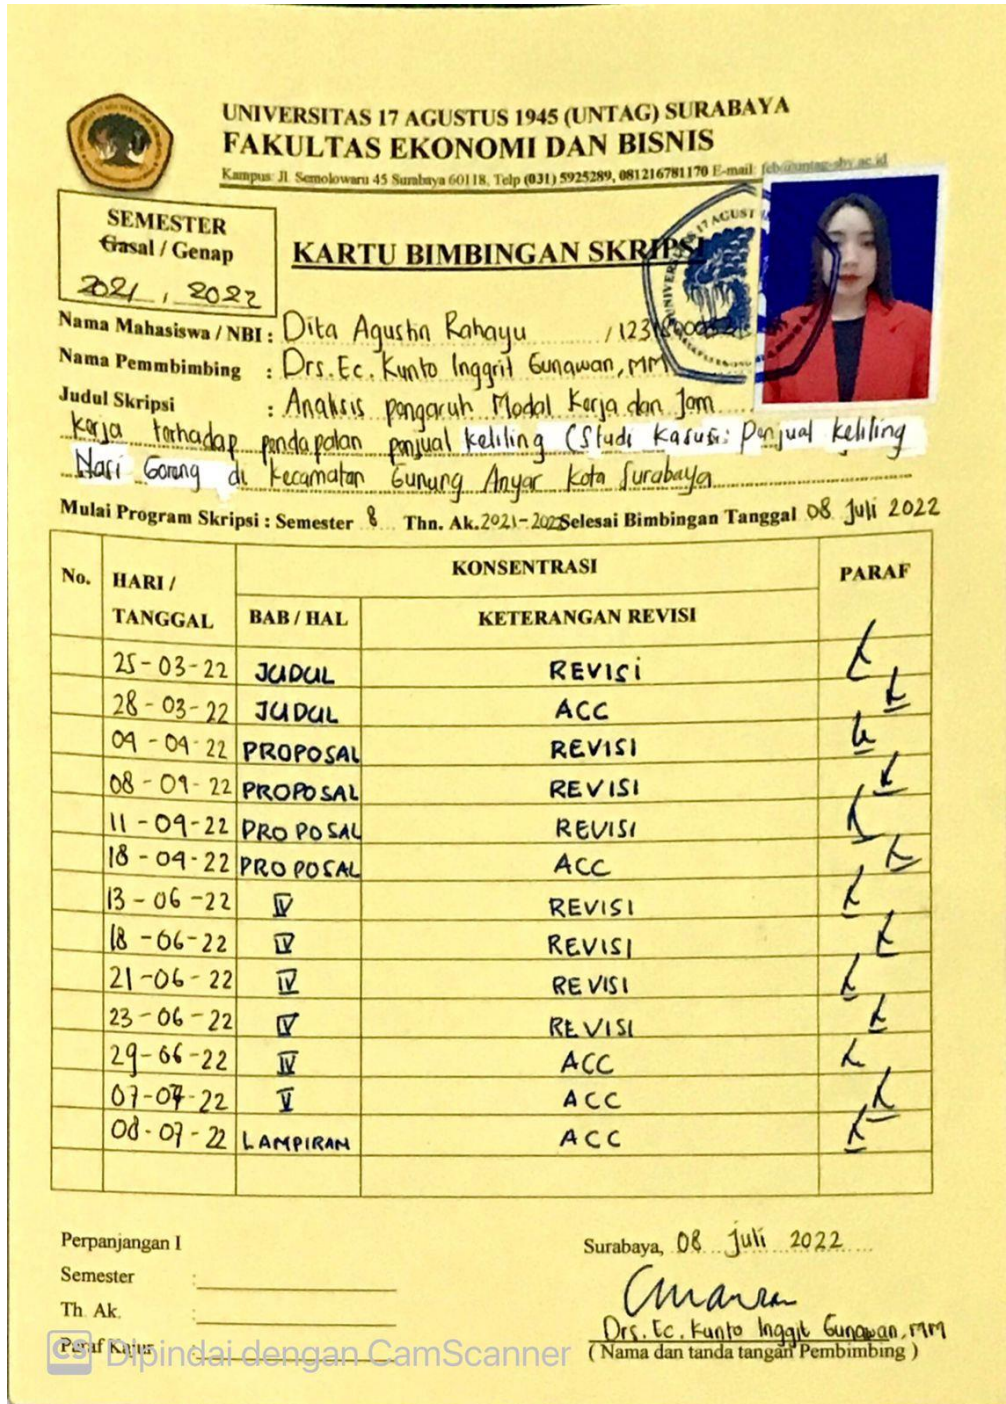 UNIVERSITAS 17 AGUSTUS 1945 (UNTAG) SURABAYA
FAKULTAS EKONOMI DAN BISNIS
Kampus: Jl. Semolowaru 45 Surabaya 60118, Telp (031) 5925289, 081216781170 E-mail: feb@untag-sby.ac.id
SEMESTER
Gasal / Genap
2021 , 2022
KARTU BIMBINGAN SKRIPSI
Nama Mahasiswa / NBI : Dita Agustin Rahayu /
Nama Pemmbimbing : Drs.Ec. Kunto Inggrit Gunawan, MM
Judul Skripsi : Analisis pengaruh Modal Kerja dan Jam
kerja terhadap pendapatan penjual keliling (Studi Kasus: Penjual keliling
Nasi Goreng di Kecamatan Gunung Anyar Kota Surabaya
Mulai Program Skripsi : Semester 8 Thn. Ak. 2021-2022 Selesai Bimbingan Tanggal 08 Juli 2022
No. HARI / TANGGAL KONSENTRASI PARAF
BAB / HAL KETERANGAN REVISI
25-03-22 JUDUL REVISI
28-03-22 JUDUL ACC
04-04-22 PROPOSAL REVISI
08-04-22 PROPOSAL REVISI
11-04-22 PROPOSAL REVISI
18-04-22 PROPOSAL ACC
13-06-22 IV REVISI
18-06-22 IV REVISI
21-06-22 IV REVISI
23-06-22 IV REVISI
29-06-22 IV ACC
07-07-22 V ACC
08-07-22 LAMPIRAN ACC
Perpanjangan I
Semester :
Th. Ak. :
Paraf Kajur :
Surabaya, 08 Juli 2022
Drs. Ec. Kunto Inggit Gunawan, MM
( Nama dan tanda tangan Pembimbing )
CS Dipindai dengan CamScanner